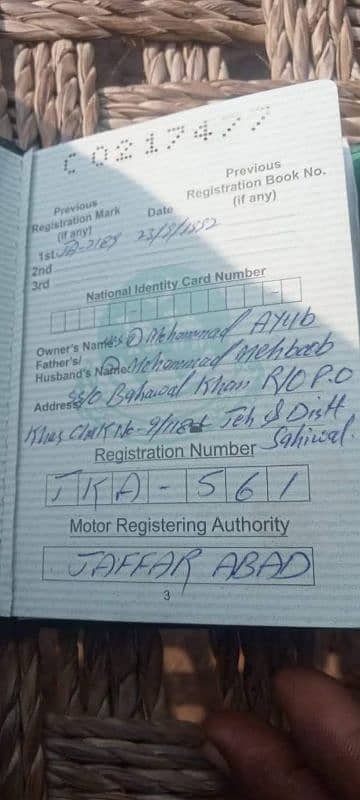 C 0217477
Previous Registration Mark (if any)
Date
Previous Registration Book No. (if any)
1st JA-2189 23/3/1552
2nd
3rd
National Identity Card Number
Owner's Name Mohammad Ayub
Father's/ Husband's Name Mohammad Mehboob
Address S/O Bahawal Khan R/O P.O
Khas Chak No- Teh & Distt
Sahiwal.
Registration Number
JKA-561
Motor Registering Authority
JAFFAR ABAD
3